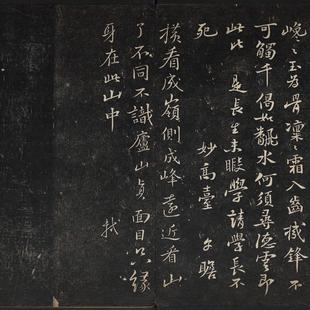 巉〻玉為骨凜〻霜入齒機鋒不
可觸千偈如飜水何須尋德雲即
此比 是長生未暇學請學長不
死 妙高臺 子瞻
橫看成嶺側成峰遠近看山
了不同不識廬山真面目只緣
身在此山中 軾